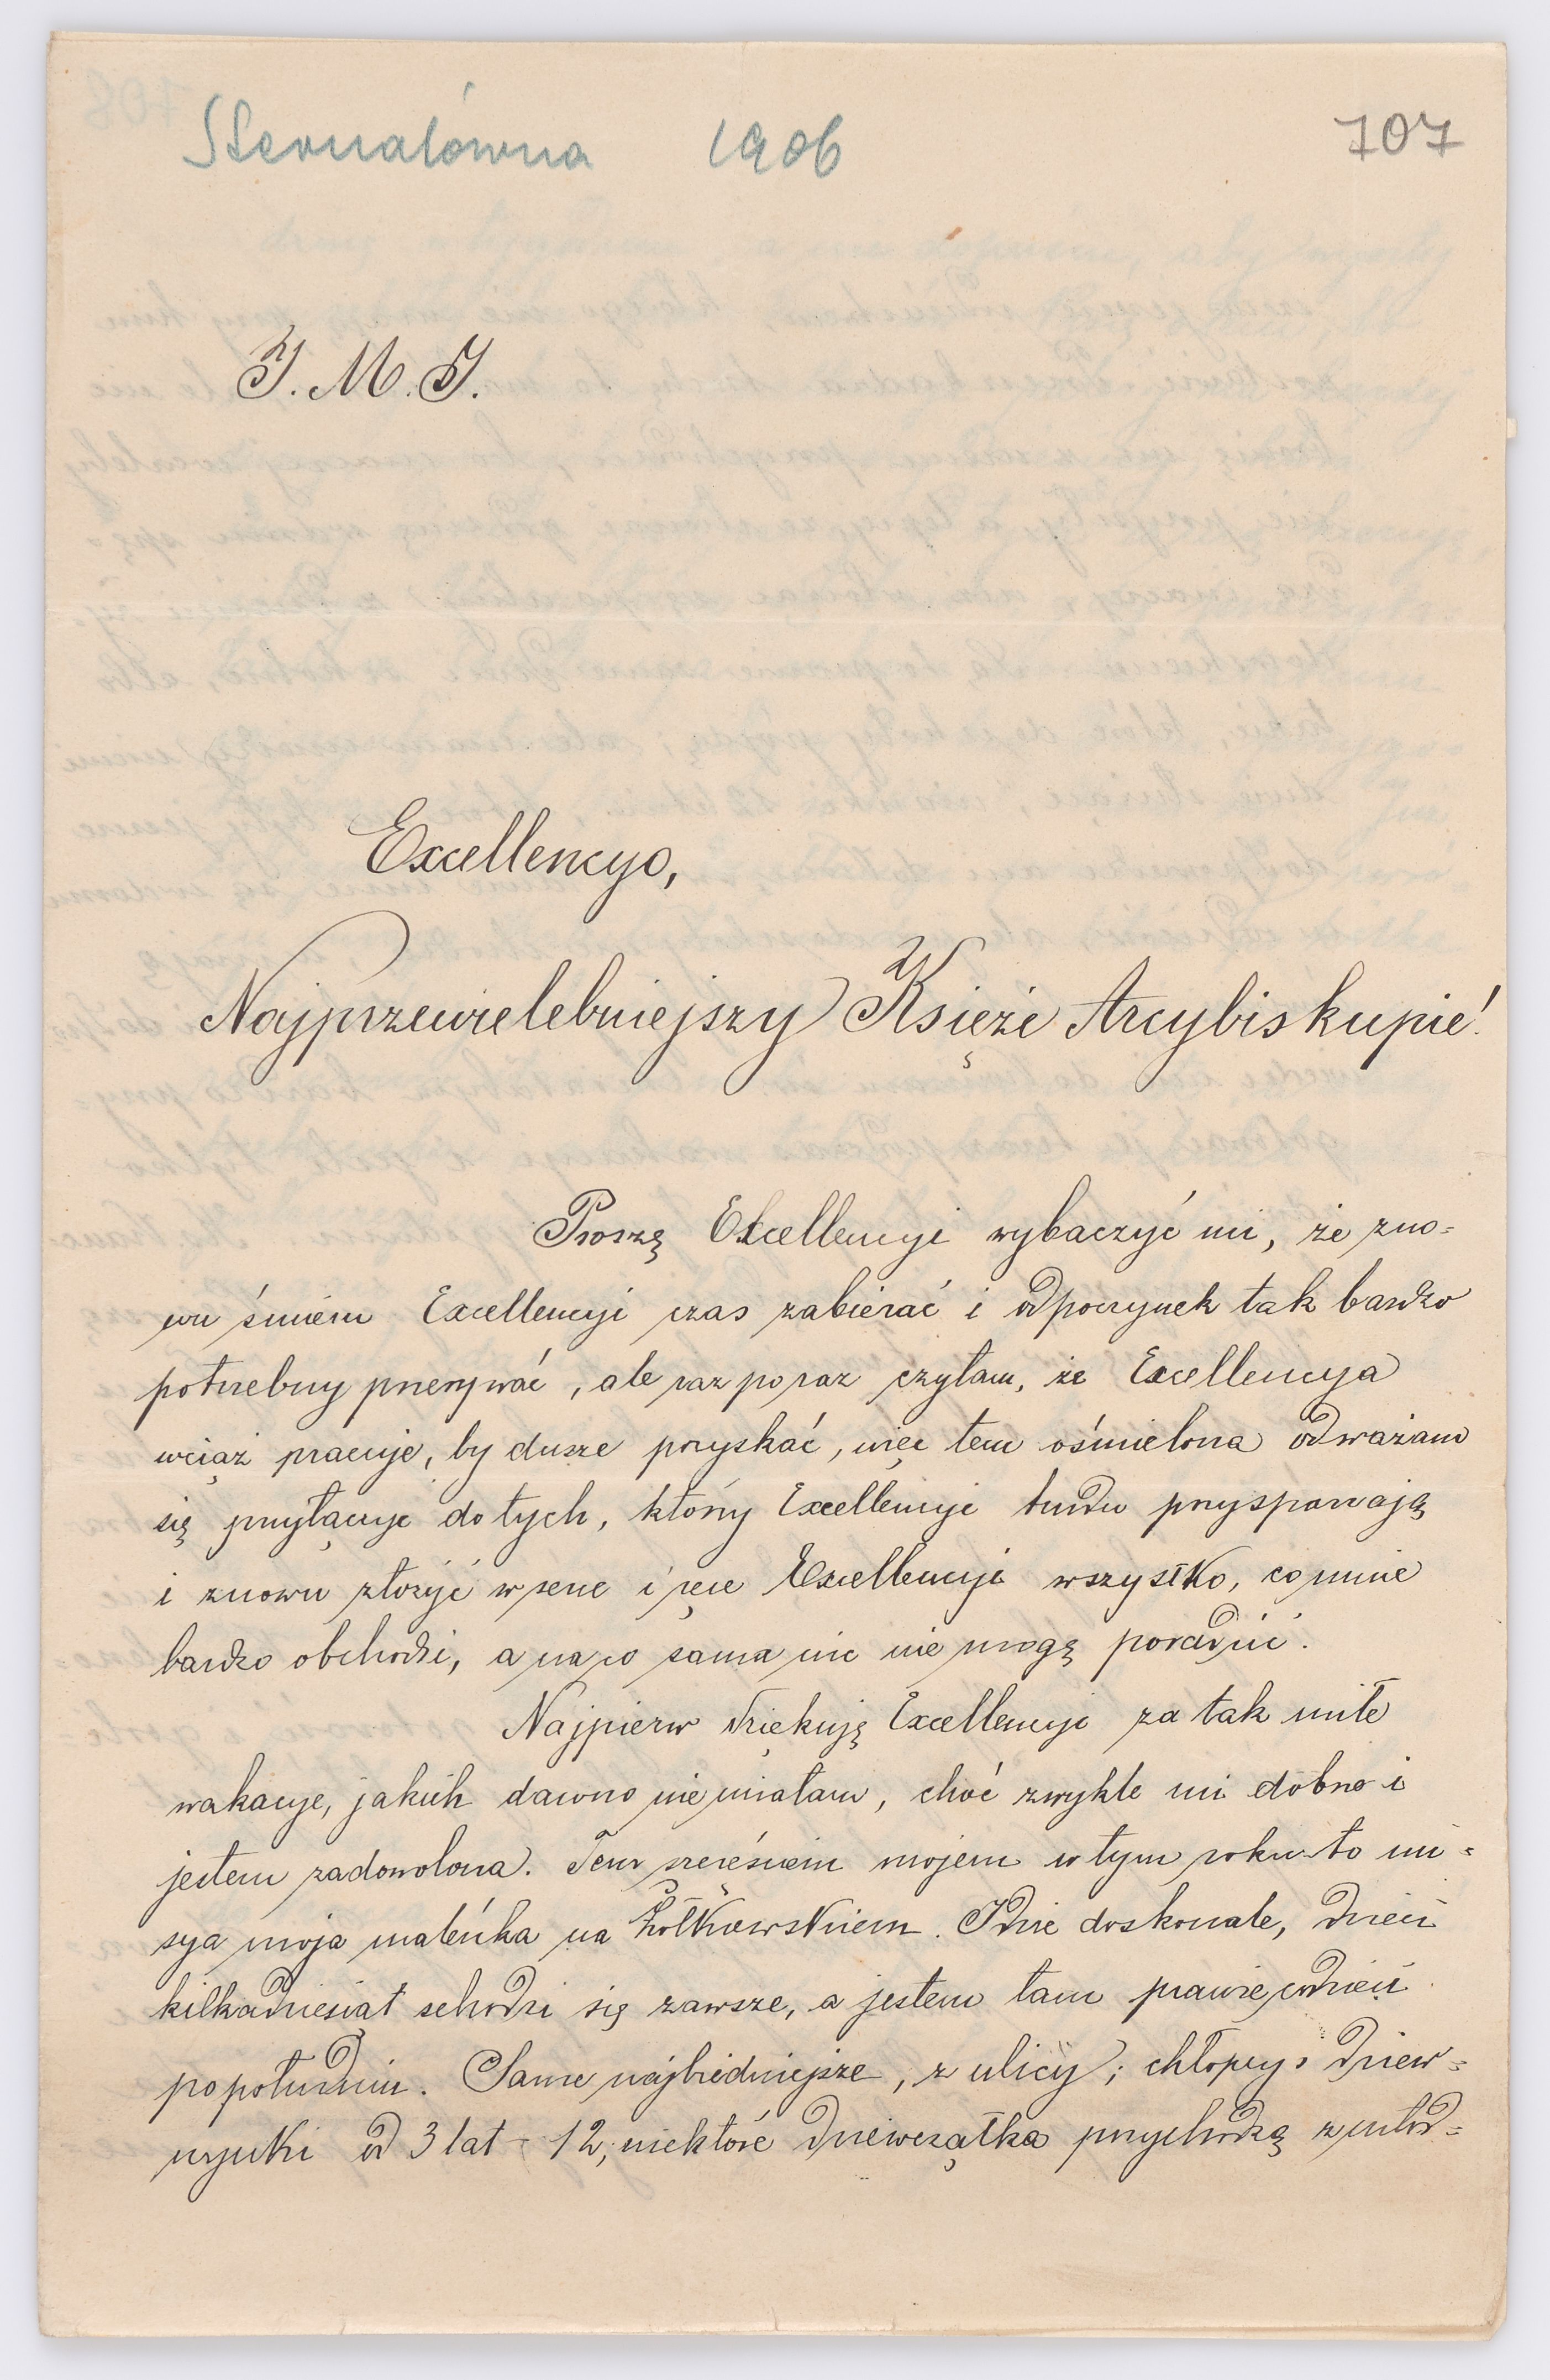 Sternalówna 1906 707
J. M. J.
Excellencyo,
Najprzewielebniejszy Księże Arcybiskupie!
Proszę Excellencyi wybaczyć mi, że zno=
wu śmiem Excellencyi czas zabierać i odpoczynek tak bardzo
potrzebny przerywać, ale raz po raz czytam, że Excellencya
wciąż pracuje, by dusze pozyskać, więc tem ośmielona odważam
się przyłączyć do tych, którzy Excellencyi trudu przysparzają
i znowu złożyć w serce i ręce Excellencyi wszystko, co mnie
bardzo obchodzi, a na co sama nic nie mogę poradzić.
Najpierw dziękuję Excellencyi za tak miłe
wakacye, jakich dawno nie miałam, choć zwykle mi dobrze i
jestem zadowolona. Tem szczęściem mojem w tym roku to mi=
sya moja maleńka na Żółkiewskiem. Idzie doskonale, dzieci
kilkadziesiąt schodzi się zawsze, a jestem tam prawie codzień
popołudniu. Same najbiedniejsze, z ulicy; chłopcy i dziew=
czynki od 3 lat - 12, niektóre dziewczątka przychodzą z młod=